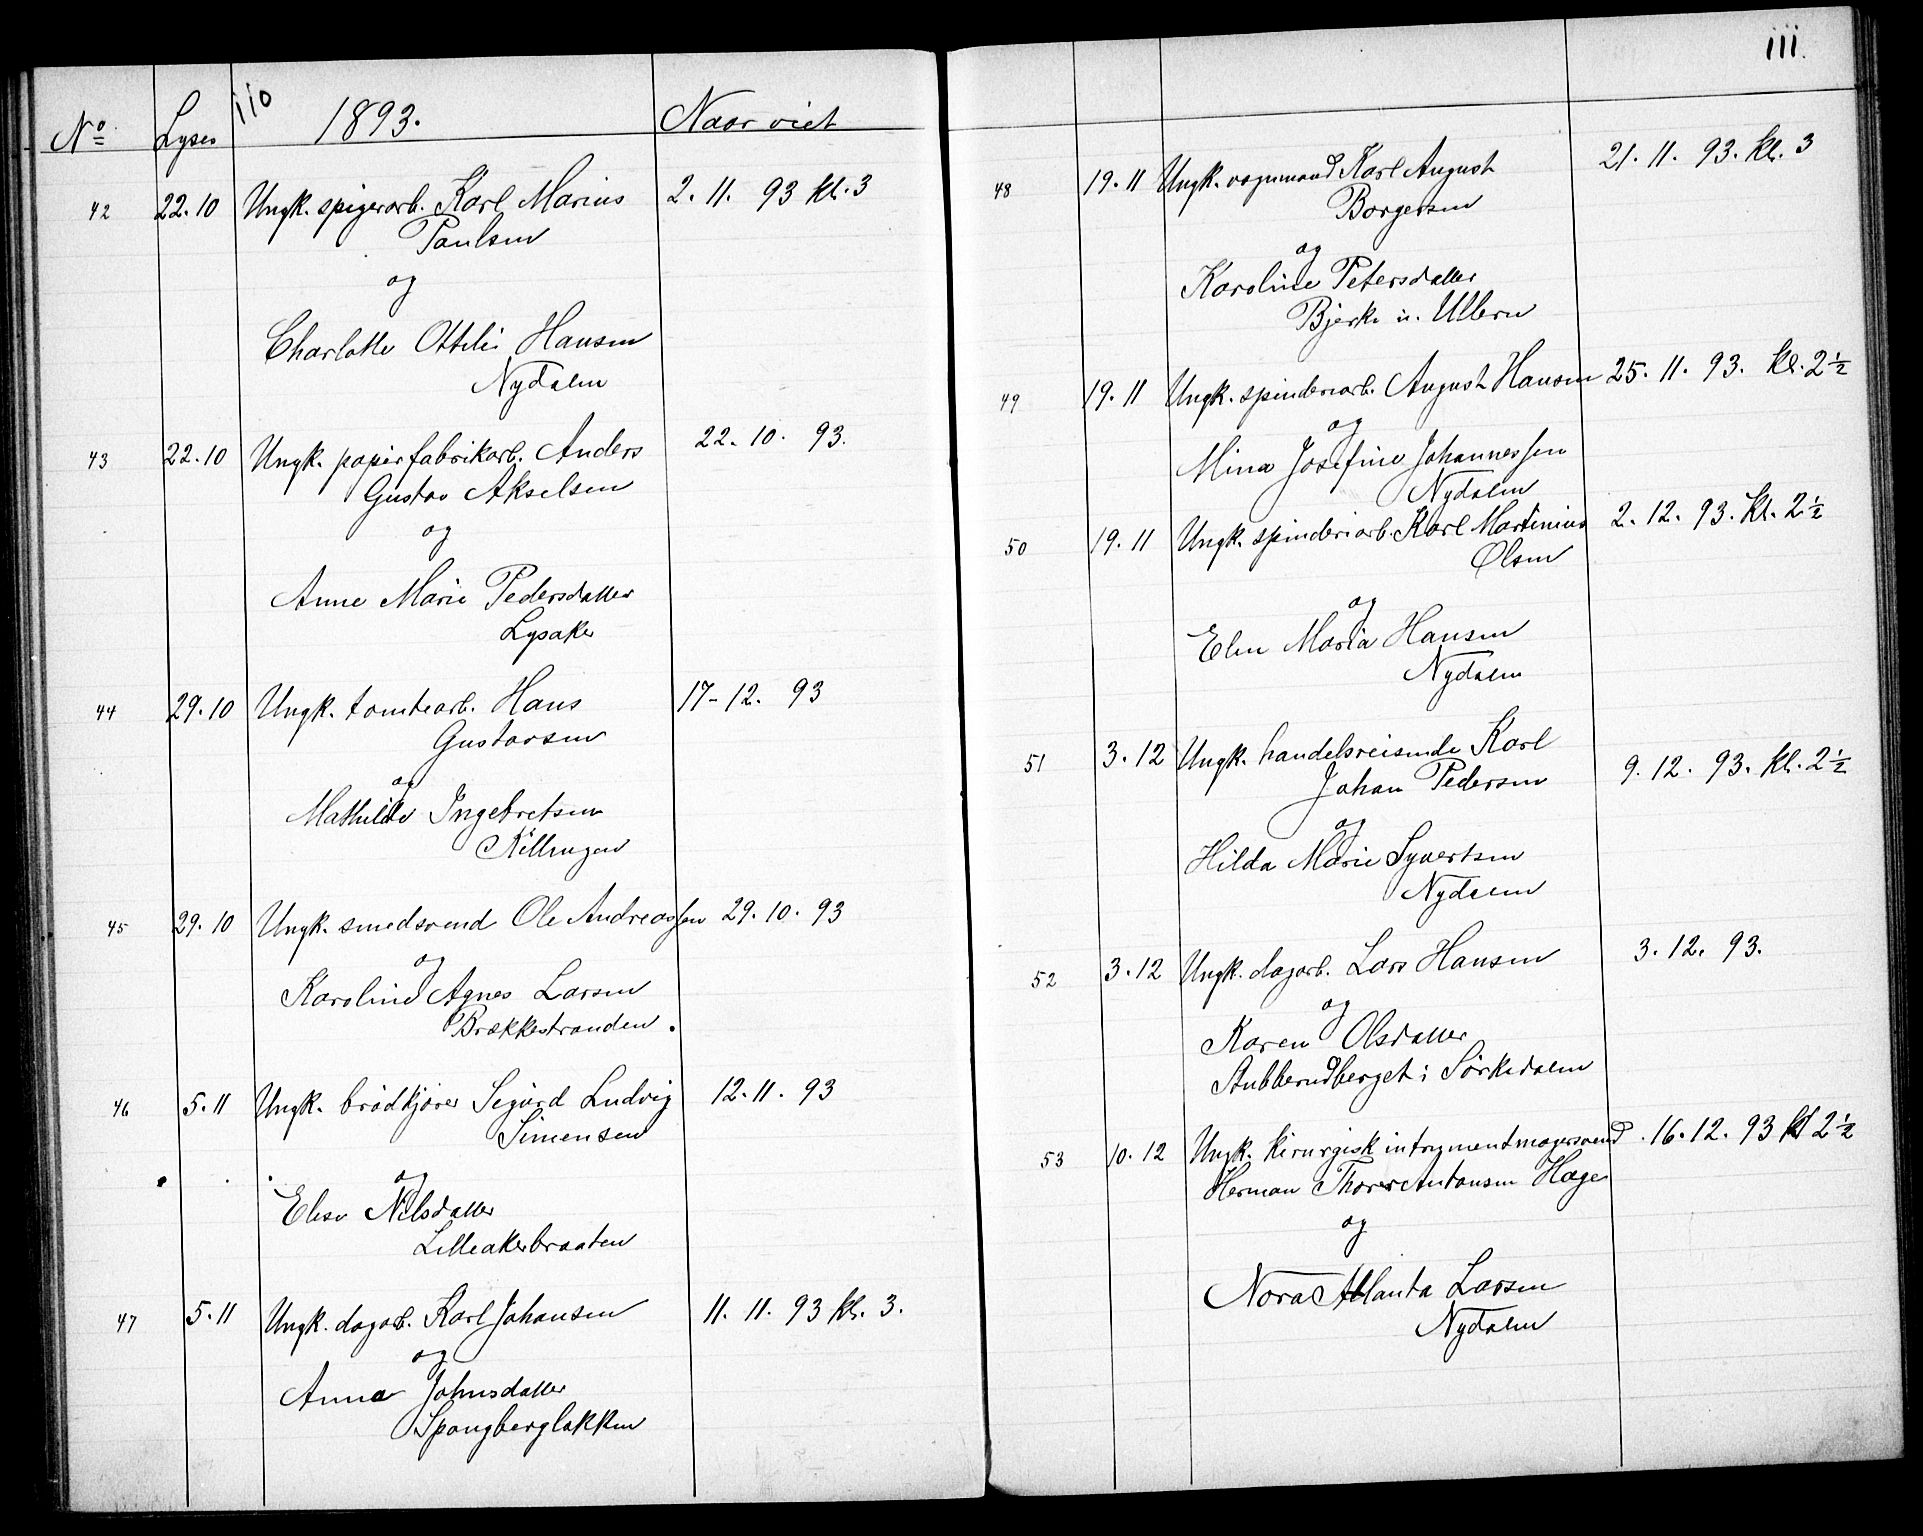 110
1893.
No Lyses Naar viet
42 22.10 Ungk. spigerarb. Karl Marius 2. 11. 93 kl. 3
Paulsen
og
Charlotte Ottilie Hansen
Nydalen
43 22.10 Ungk. papirfabrikarb. Anders 22. 10. 93.
Gustav Akselsen
og
Anne Marie Pedersdatter
Lysaker
44 29.10 Ungk. tomtearb. Hans 17-12. 93
Gustavsen
og
Mathilde Ingebretsen
Killingen
45 29.10 Ungk. smedsvend Ole Andreassen 29. 10. 93
og
Karoline Agnes Larsen
Brækkestranden.
46 5.11 Ungk. brødkjører Sigurd Ludvig 12. 11. 93
Simensen
og
Elise Nilsdatter
Lilleakerbraaten
47 5.11 Ungk. dagarb. Karl Johansen 11. 11. 93 kl. 3.
og
Anna Johnsdatter
Spongbergløkken
111.
48 19.11 Ungk. vognmand Karl August 21. 11. 93. kl. 3
Borgersen
og
Karoline Petersdatter
Bjerke u. Ullern
49 19.11 Ungk. spinderiarb. August Hansen 25. 11. 93. kl. 2½
og
Mina Josefine Johannessen
Nydalen
50 19.11 Ungk. spinderiarb. Karl Martinius 2. 12. 93. kl. 2½
Olsen
og
Elen Maria Hansen
Nydalen
51 3.12 Ungk. handelsreisende Karl 9. 12. 93. kl. 2½
Johan Pedersen
og
Hilda Marie Syvertsen
Nydalen
52 3.12 Ungk. dagarb. Lars Hansen 3. 12. 93.
og
Karen Olsdatter
Stubberudberget i Sørkedalen
53 10.12 Ungk. kirurgisk intrumentmagersvend 16. 12. 93 kl 2½
Herman Thorer Antonsen Hage
og
Nora Atlanta Larsen
Nydalen